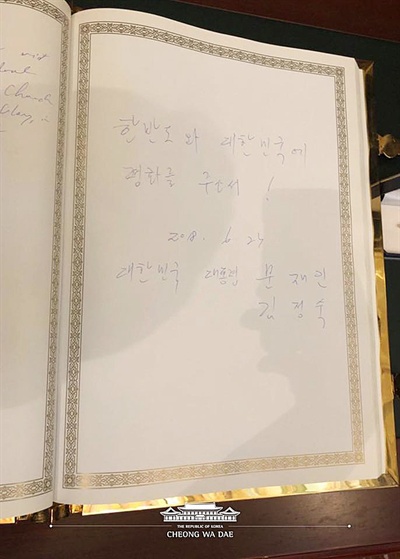 한반도와 대한민국에
평화를 주소서!
2018. 6. 23
대한민국 대통령 문재인
김정숙
THE REPUBLIC OF KOREA
CHEONG WA DAE